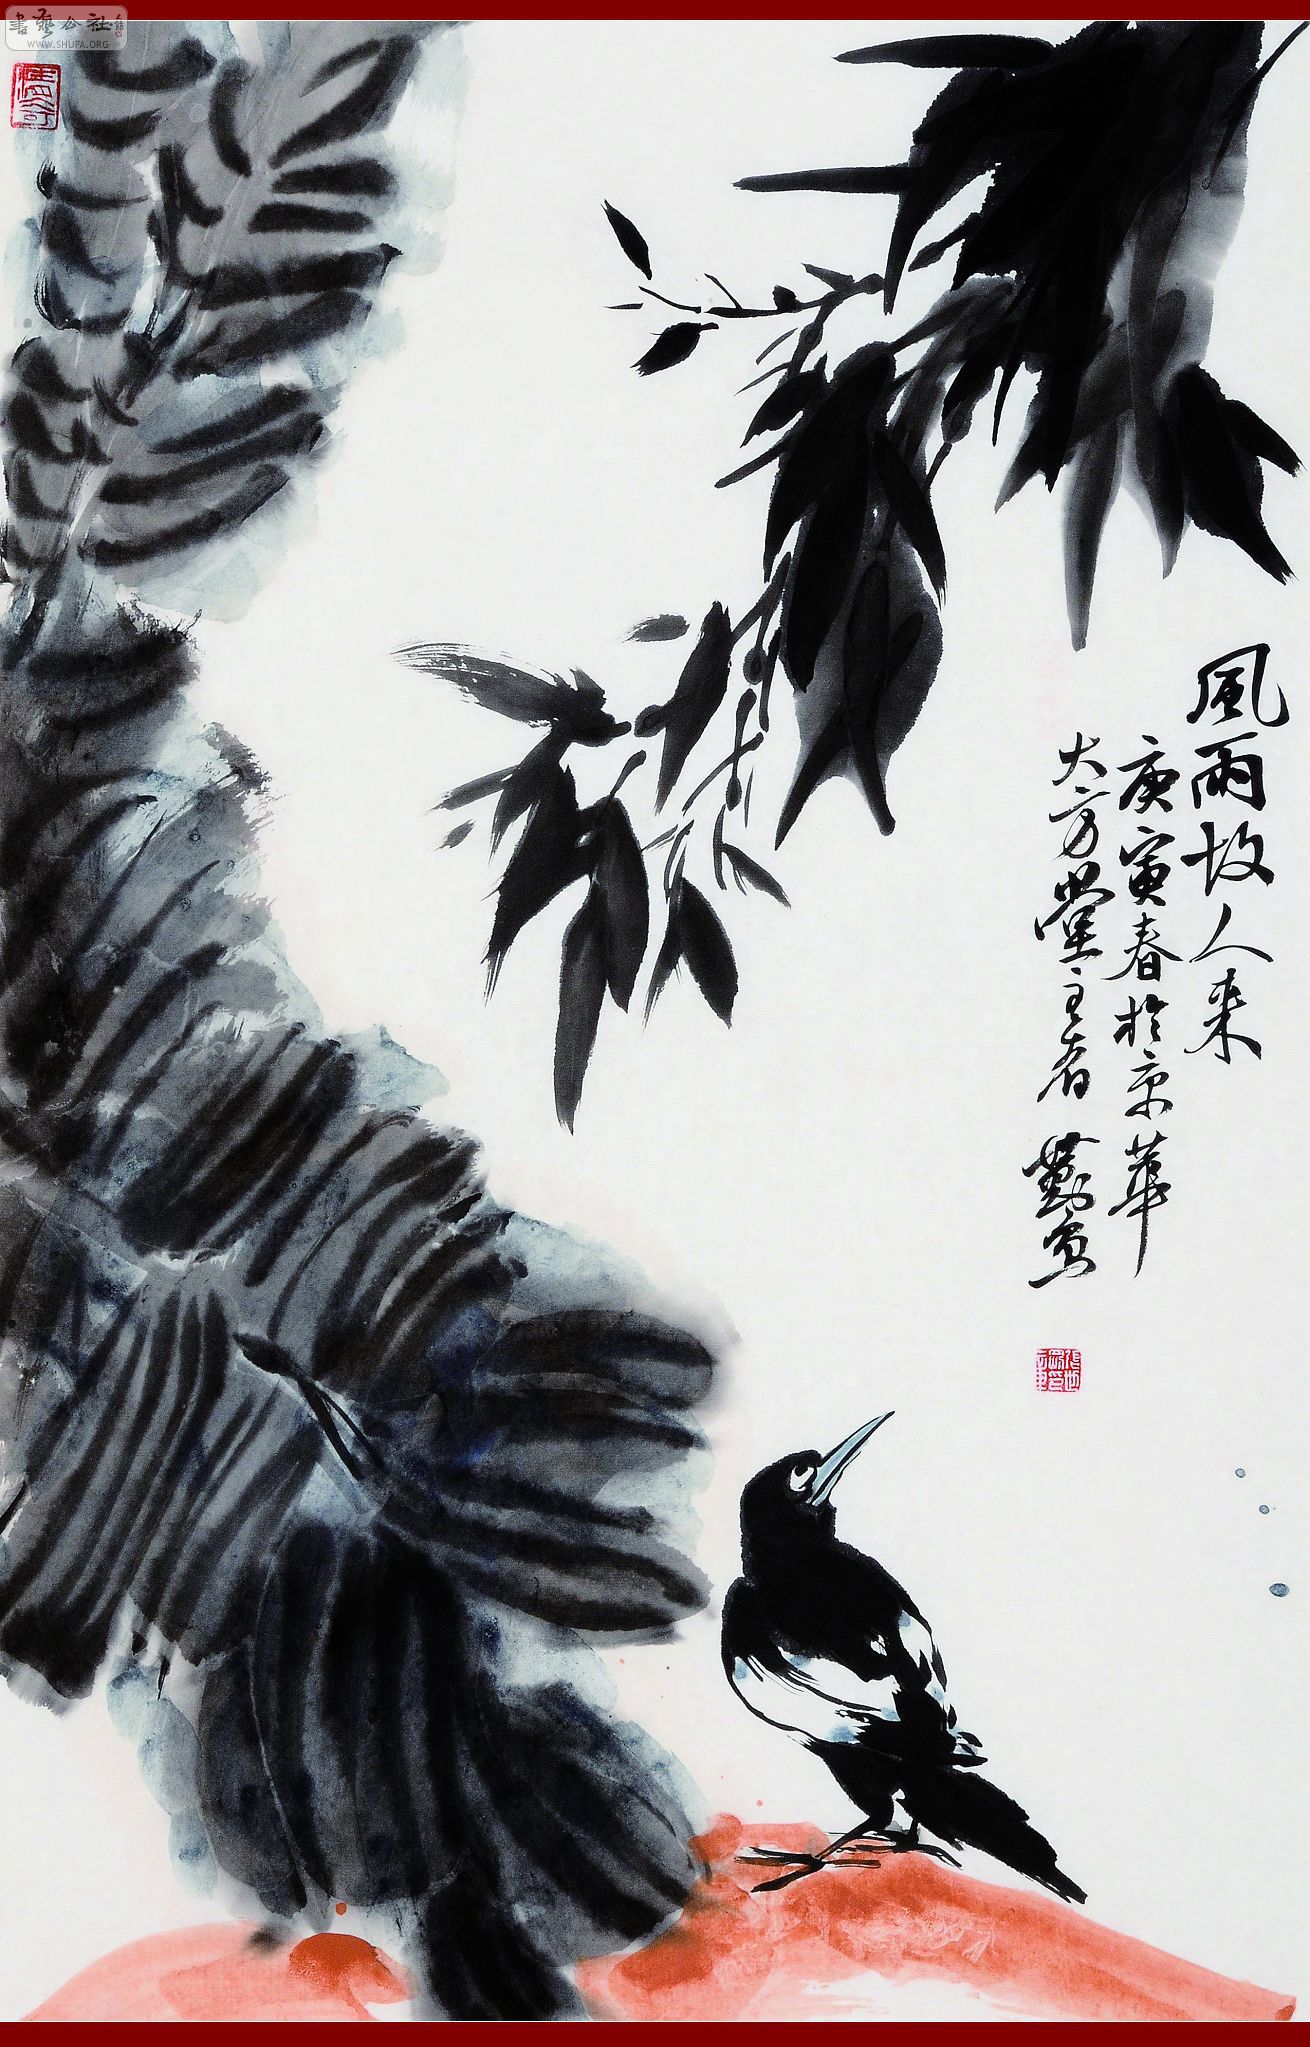 書藝公社
WWW.SHUFA.ORG
風雨故人来
庚寅春於京華
大方堂主者